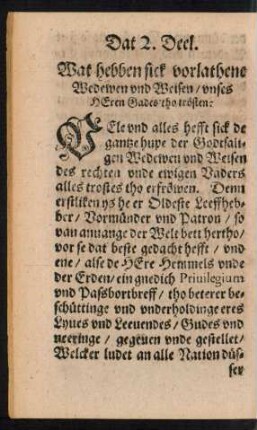 Dat 2. Deel.
Wat hebben sick vorlathene
Wedewen vnd Weisen / vnses
HEren Gades tho trösten?
VEle vnd alles hefft sick de
gantze hupe der Godtsali-
gen Wedewen vnd Weisen
des rechten vnde ewigen Vaders
alles trostes tho erfröwen. Denn
erstliken ys he er Oldeste Leeffheb-
ber / Vormünder vnd Patron / so
van anfange der Welt bett hertho /
vor se dat beste gedacht hefft / vnd
ene / alse de HEre Hemmels vnde
der Erden / ein gnedich Priuilegium
vnd Paßbortbreff / tho beterer be-
schüttinge vnd vnderholdinge eres
Lyues vnd Leeuendes / Gudes vnd
neeringe / gegeuen vnde gestellet /
Welcker ludet an alle Nation düs-
ser